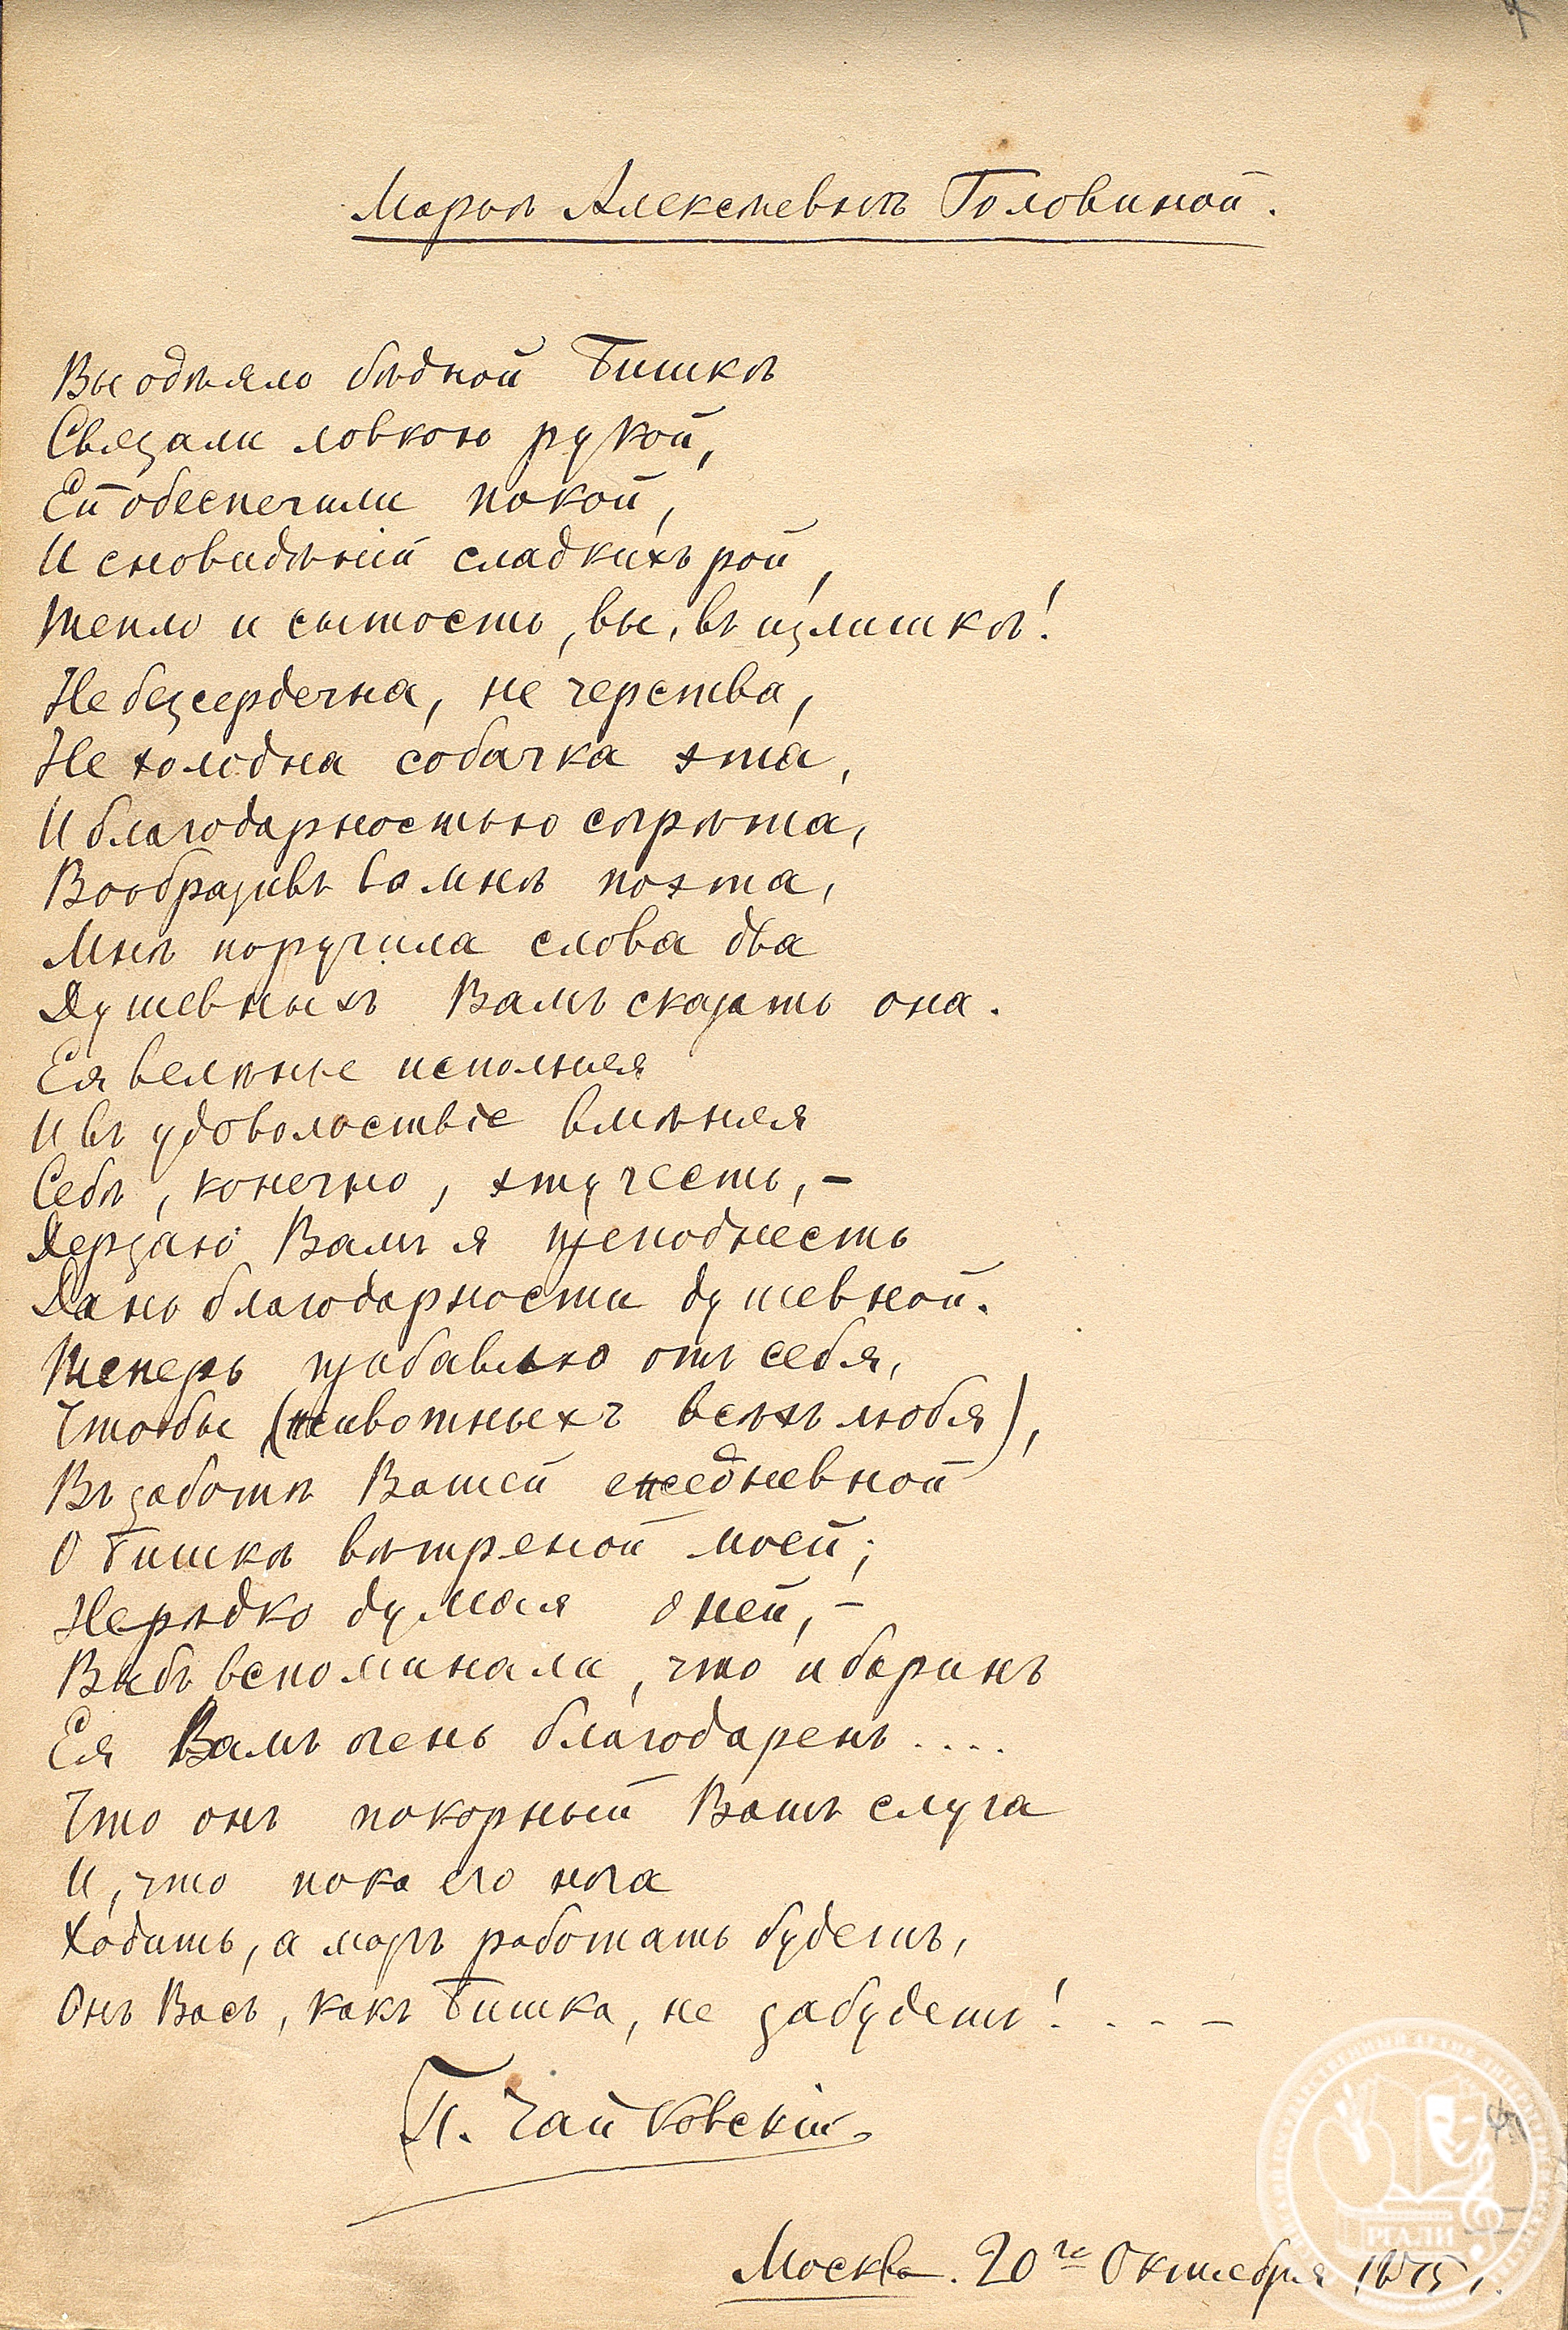 Марьѣ Алексѣевнѣ Головиной.
Вы одѣяло бѣдной Бишкѣ
Связали ловкою рукой,
Ей обеспечили покой,
И сновидѣній сладкихъ рой,
Тепло и сытость, вы, въ излишкѣ!
Не безсердечна, не черства,
Не холодна собачка эта,
И благодарностью согрѣта,
Вообразивъ во мнѣ поэта,
Мнѣ поручила слова два
Душевныхъ Вамъ сказать она.
Ея велѣнье исполняя
И въ удовольствіе вмѣняя
Себѣ, конечно, эту честь, –
Дерзаю Вамъ я преподнесть
Дань благодарности душевной.
Теперь прибавлю отъ себя,
Чтобы (животныхъ всѣхъ любя),
Въ заботѣ Вашей ежедневной
О Бишкѣ вѣтреной моей;
Нерѣдко думая о ней, –
Вы бъ вспоминали, что и баринъ
Ея Вамъ очень благодаренъ....
Что онъ покорный Вашъ слуга
И, что пока его нога
Ходить, а мозгъ работать будетъ,
Онъ Васъ, какъ Бишка, не забудетъ! . . - –
П. Чайковскій.
Москва. 20го Октября 1875 г.
РГАЛИ